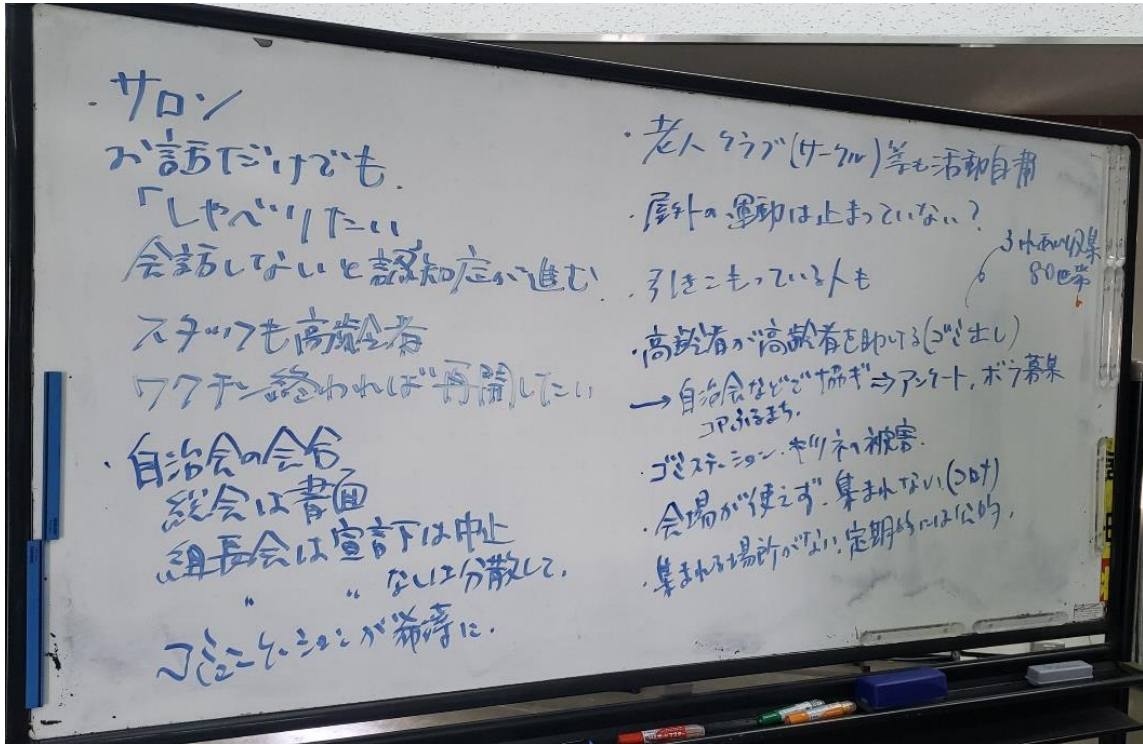 サロン
お話だけでも
「しゃべりたい
会話しないと認知症が進む
スタッフも高齢者
ワクチン終われば再開したい
・自治会の会合
総会は書面
組長会は宣言下は中止
〃 〃 ないは分散して、
コミュニケーションが希薄に。
・老人クラブ(サークル)等も活動自粛
・屋外の運動は止まっていない?
・引きこもっている人も
ふれあい収集
80世帯
・高齢者が高齢者を助ける(ゴミ出し)
→自治会などで協ギ⇒アンケート、ボラ募集
コアふるまち、
・ゴミステーション・キツネの被害
・会場が使えず、集まれない(コロナ)
・集まれる場所がない、定期的には公的、